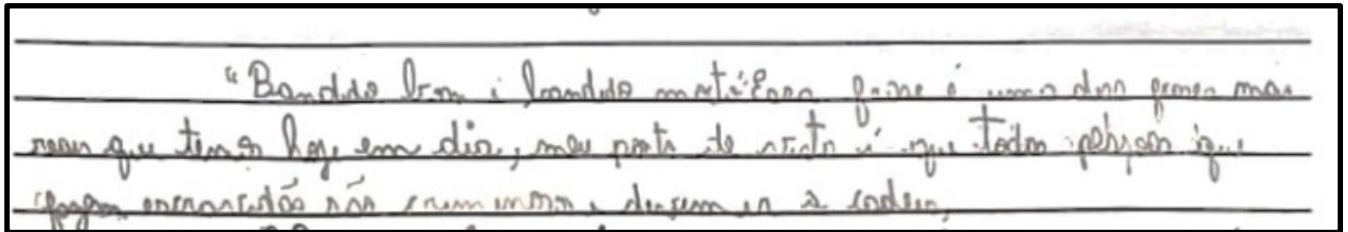 "Bandido bom é bandido morto" Essa frase é uma das frases mais
reais que temos hoje em dia, meu ponto de vista é que todas pessoas que
são criminosos e devem ir a cadeia,